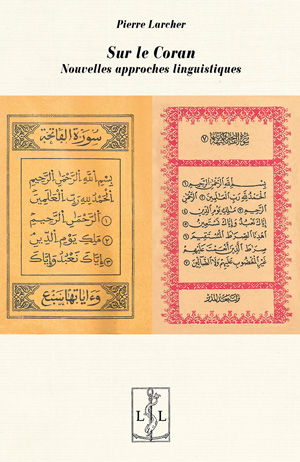 Pierre Larcher
Sur le Coran
Nouvelles approches linguistiques
سورة الفاتحة
بسم الله الرحمن الرحيم
الحمد لله رب العالمين
الرحمن الرحيم
ملك يوم الدين
إياك نعبد وإياك
وءاياتها سبع
بسم الله الرحمن الرحيم ١
الحمد لله رب العالمين ٢ الرحمن
الرحيم ٣ ملك يوم الدين ٤
إياك نعبد وإياك نستعين ٥
اهدنا الصراط المستقيم ٦
صراط الذين أنعمت عليهم
غير المغضوب عليهم ولا الضالين ٧
L L